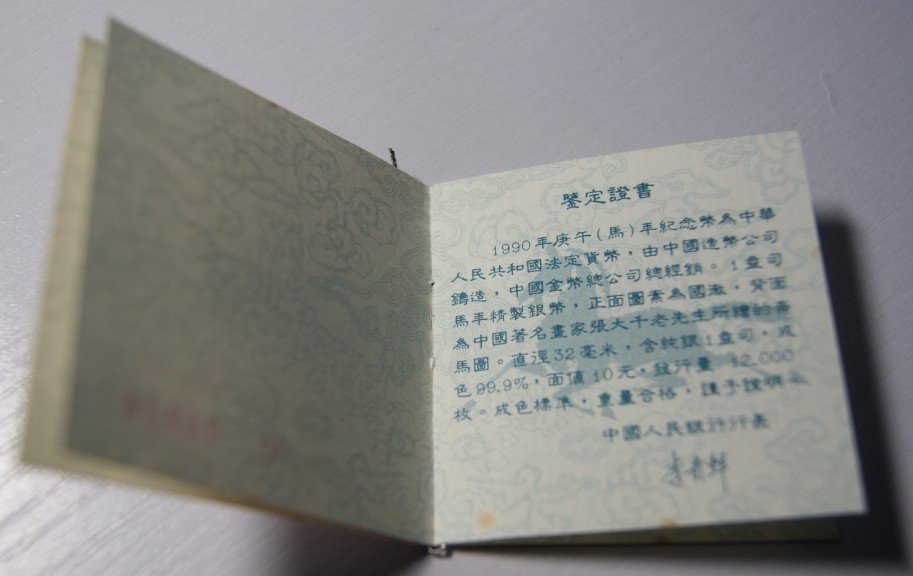 鑒定證書
1990年庚午(馬)年紀念幣為中華
人民共和國法定貨幣，由中國造幣公司
鑄造，中國金幣總公司總經銷。1盎司
馬年精製銀幣，正面圖案為國徽，背面
為中國著名畫家張大千老先生所繪的奔
馬圖。直徑32毫米，含純銀1盎司，成
色99.9%，面值10元，發行量 12,000
枚。成色標準，重量合格，謹予證明。
中國人民銀行行長